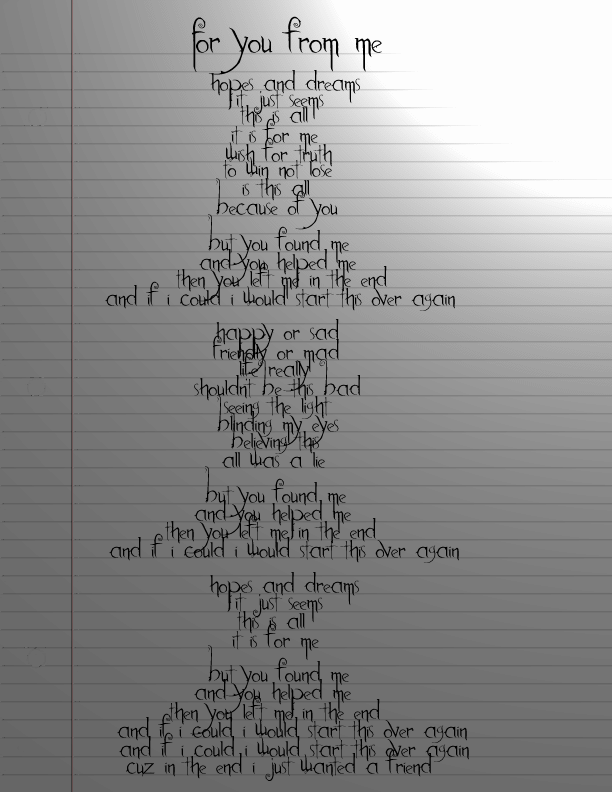 for you from me
hopes and dreams
it just seems
this is all
it is for me
wish for truth
to win not lose
is this all
because of you
but you found me
and you helped me
then you left me in the end
and if i could i would start this over again
happy or sad
friendly or mad
life really
shouldnt be this bad
seeing the light
blinding my eyes
believing this
all was a lie
but you found me
and you helped me
then you left me in the end
and if i could i would start this over again
hopes and dreams
it just seems
this is all
it is for me
but you found me
and you helped me
then you left me in the end
and if i could i would start this over again
and if i could i would start this over again
cuz in the end i just wanted a friend